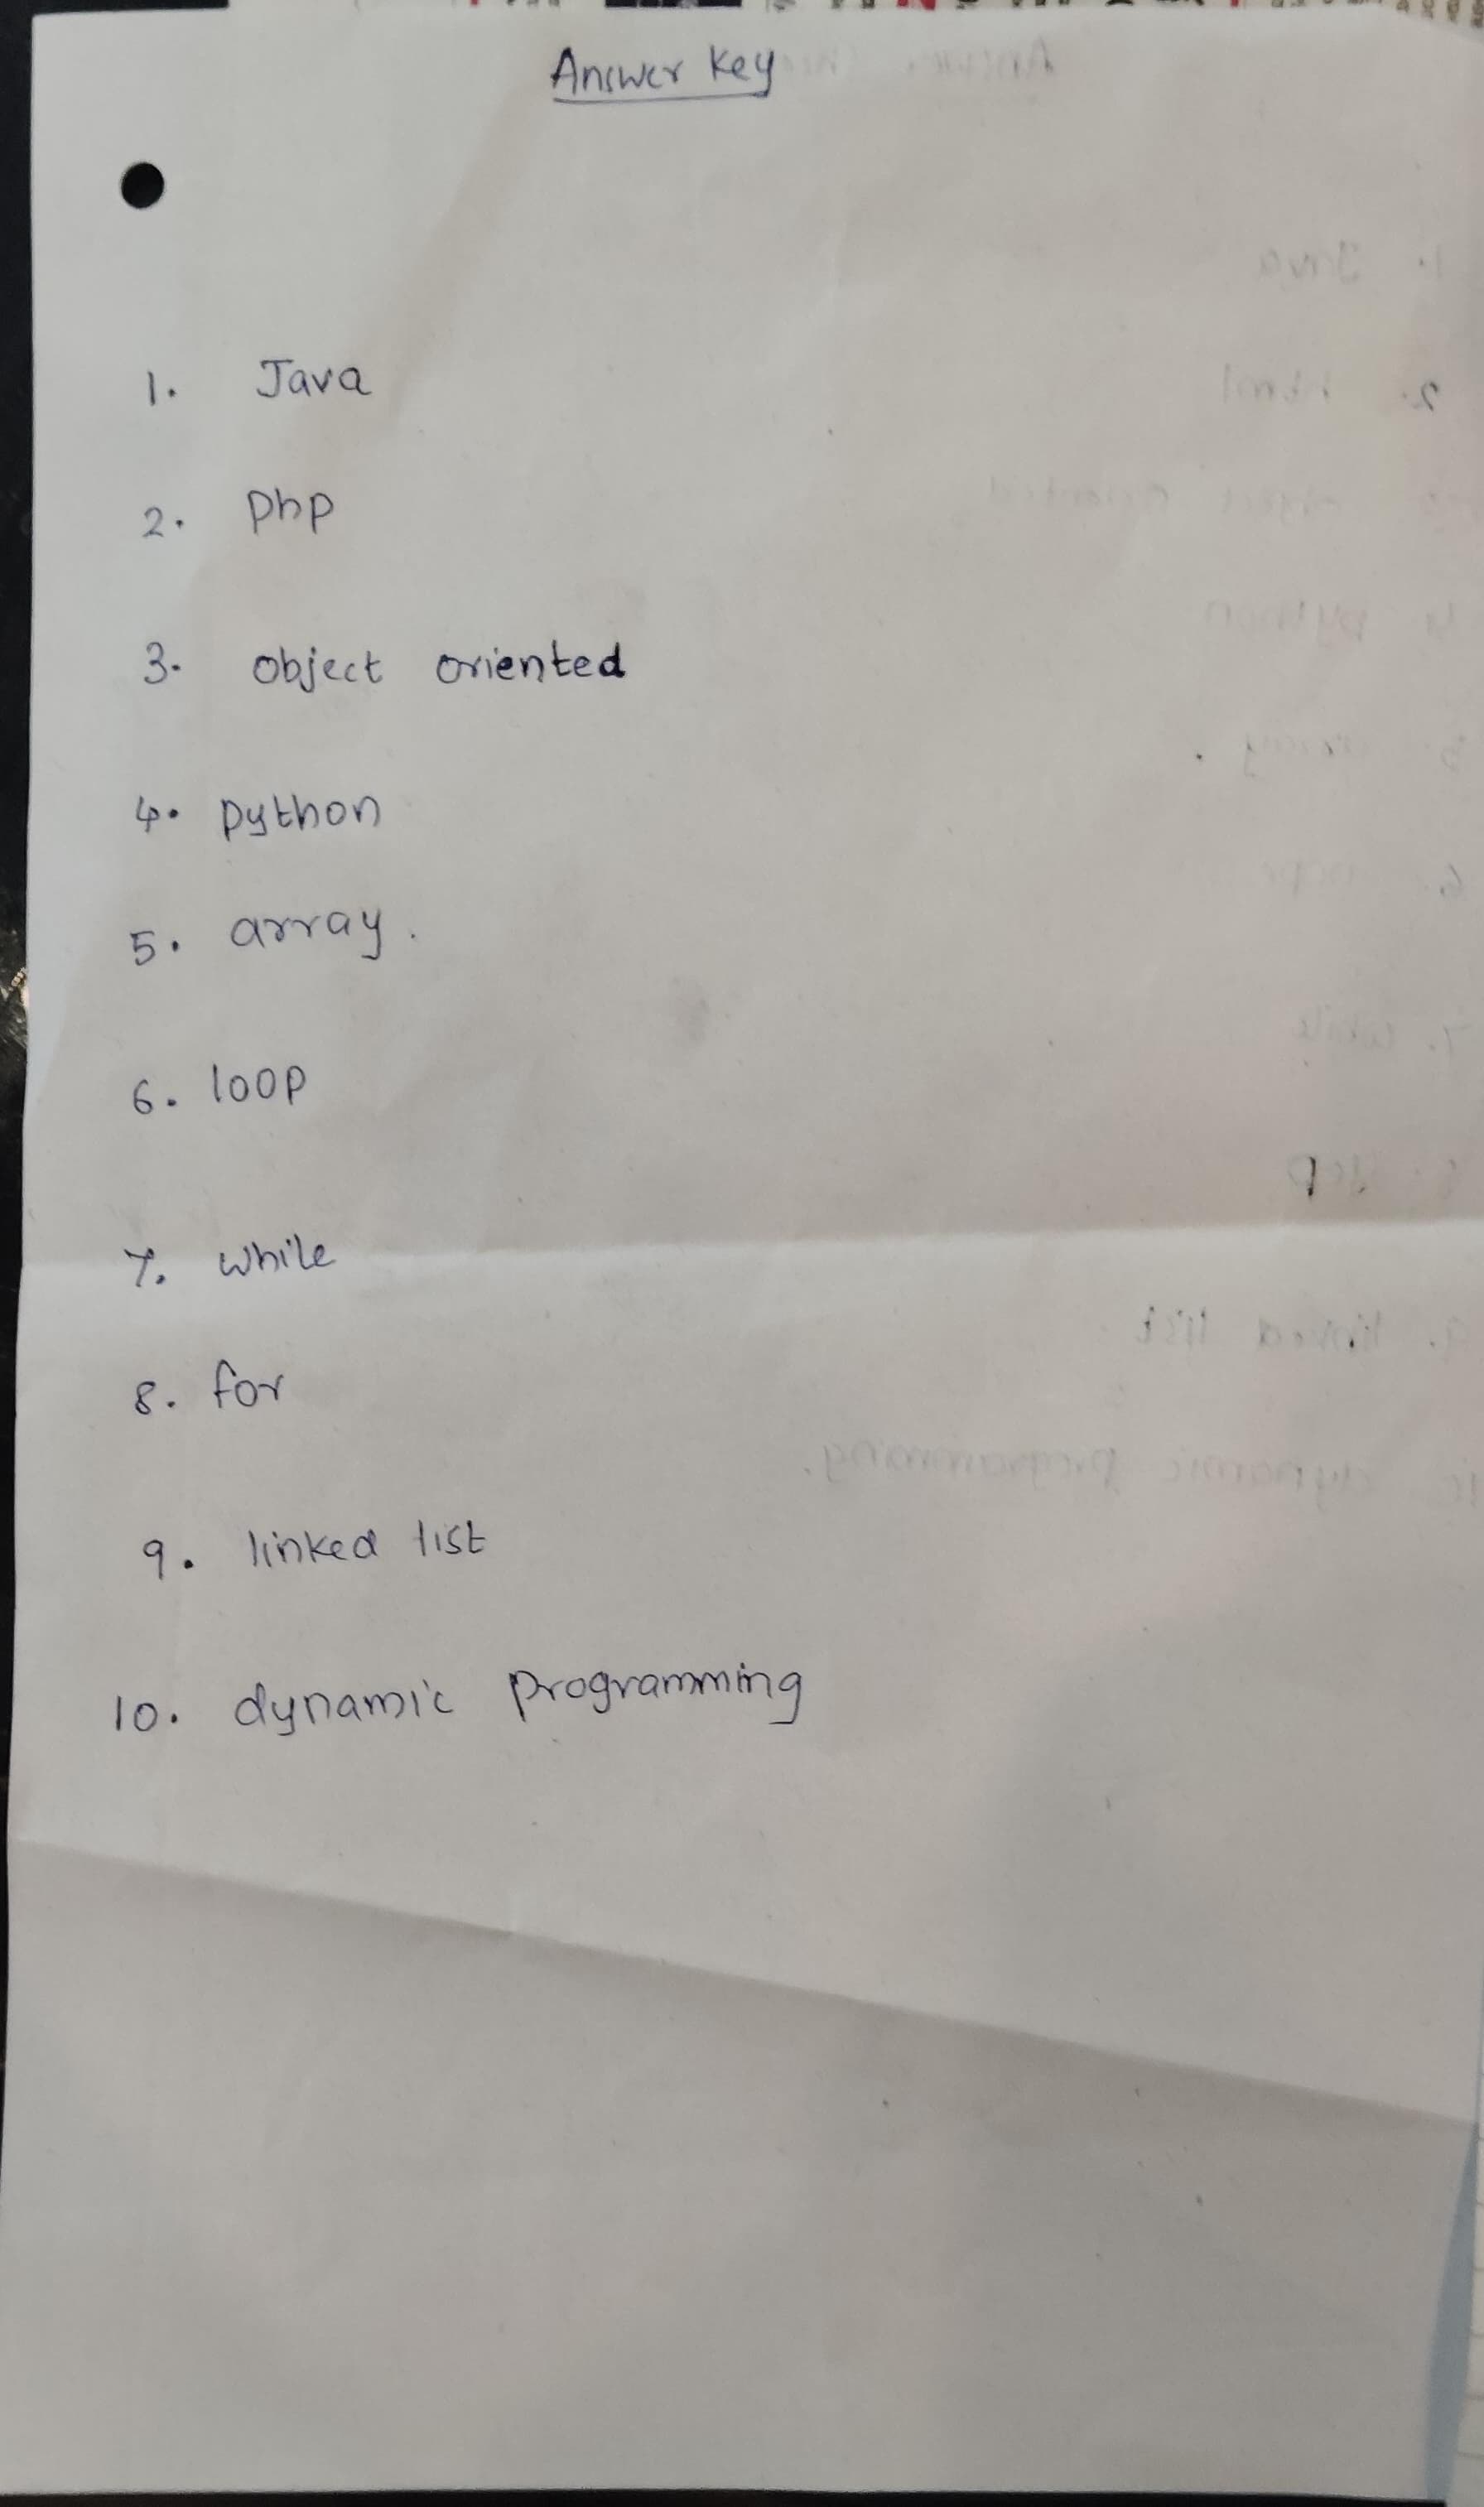 Answer key
1. Java
2. php
3. object oriented
4. python
5. array.
6. loop
7. while
8. for
9. linked list
10. dynamic programming